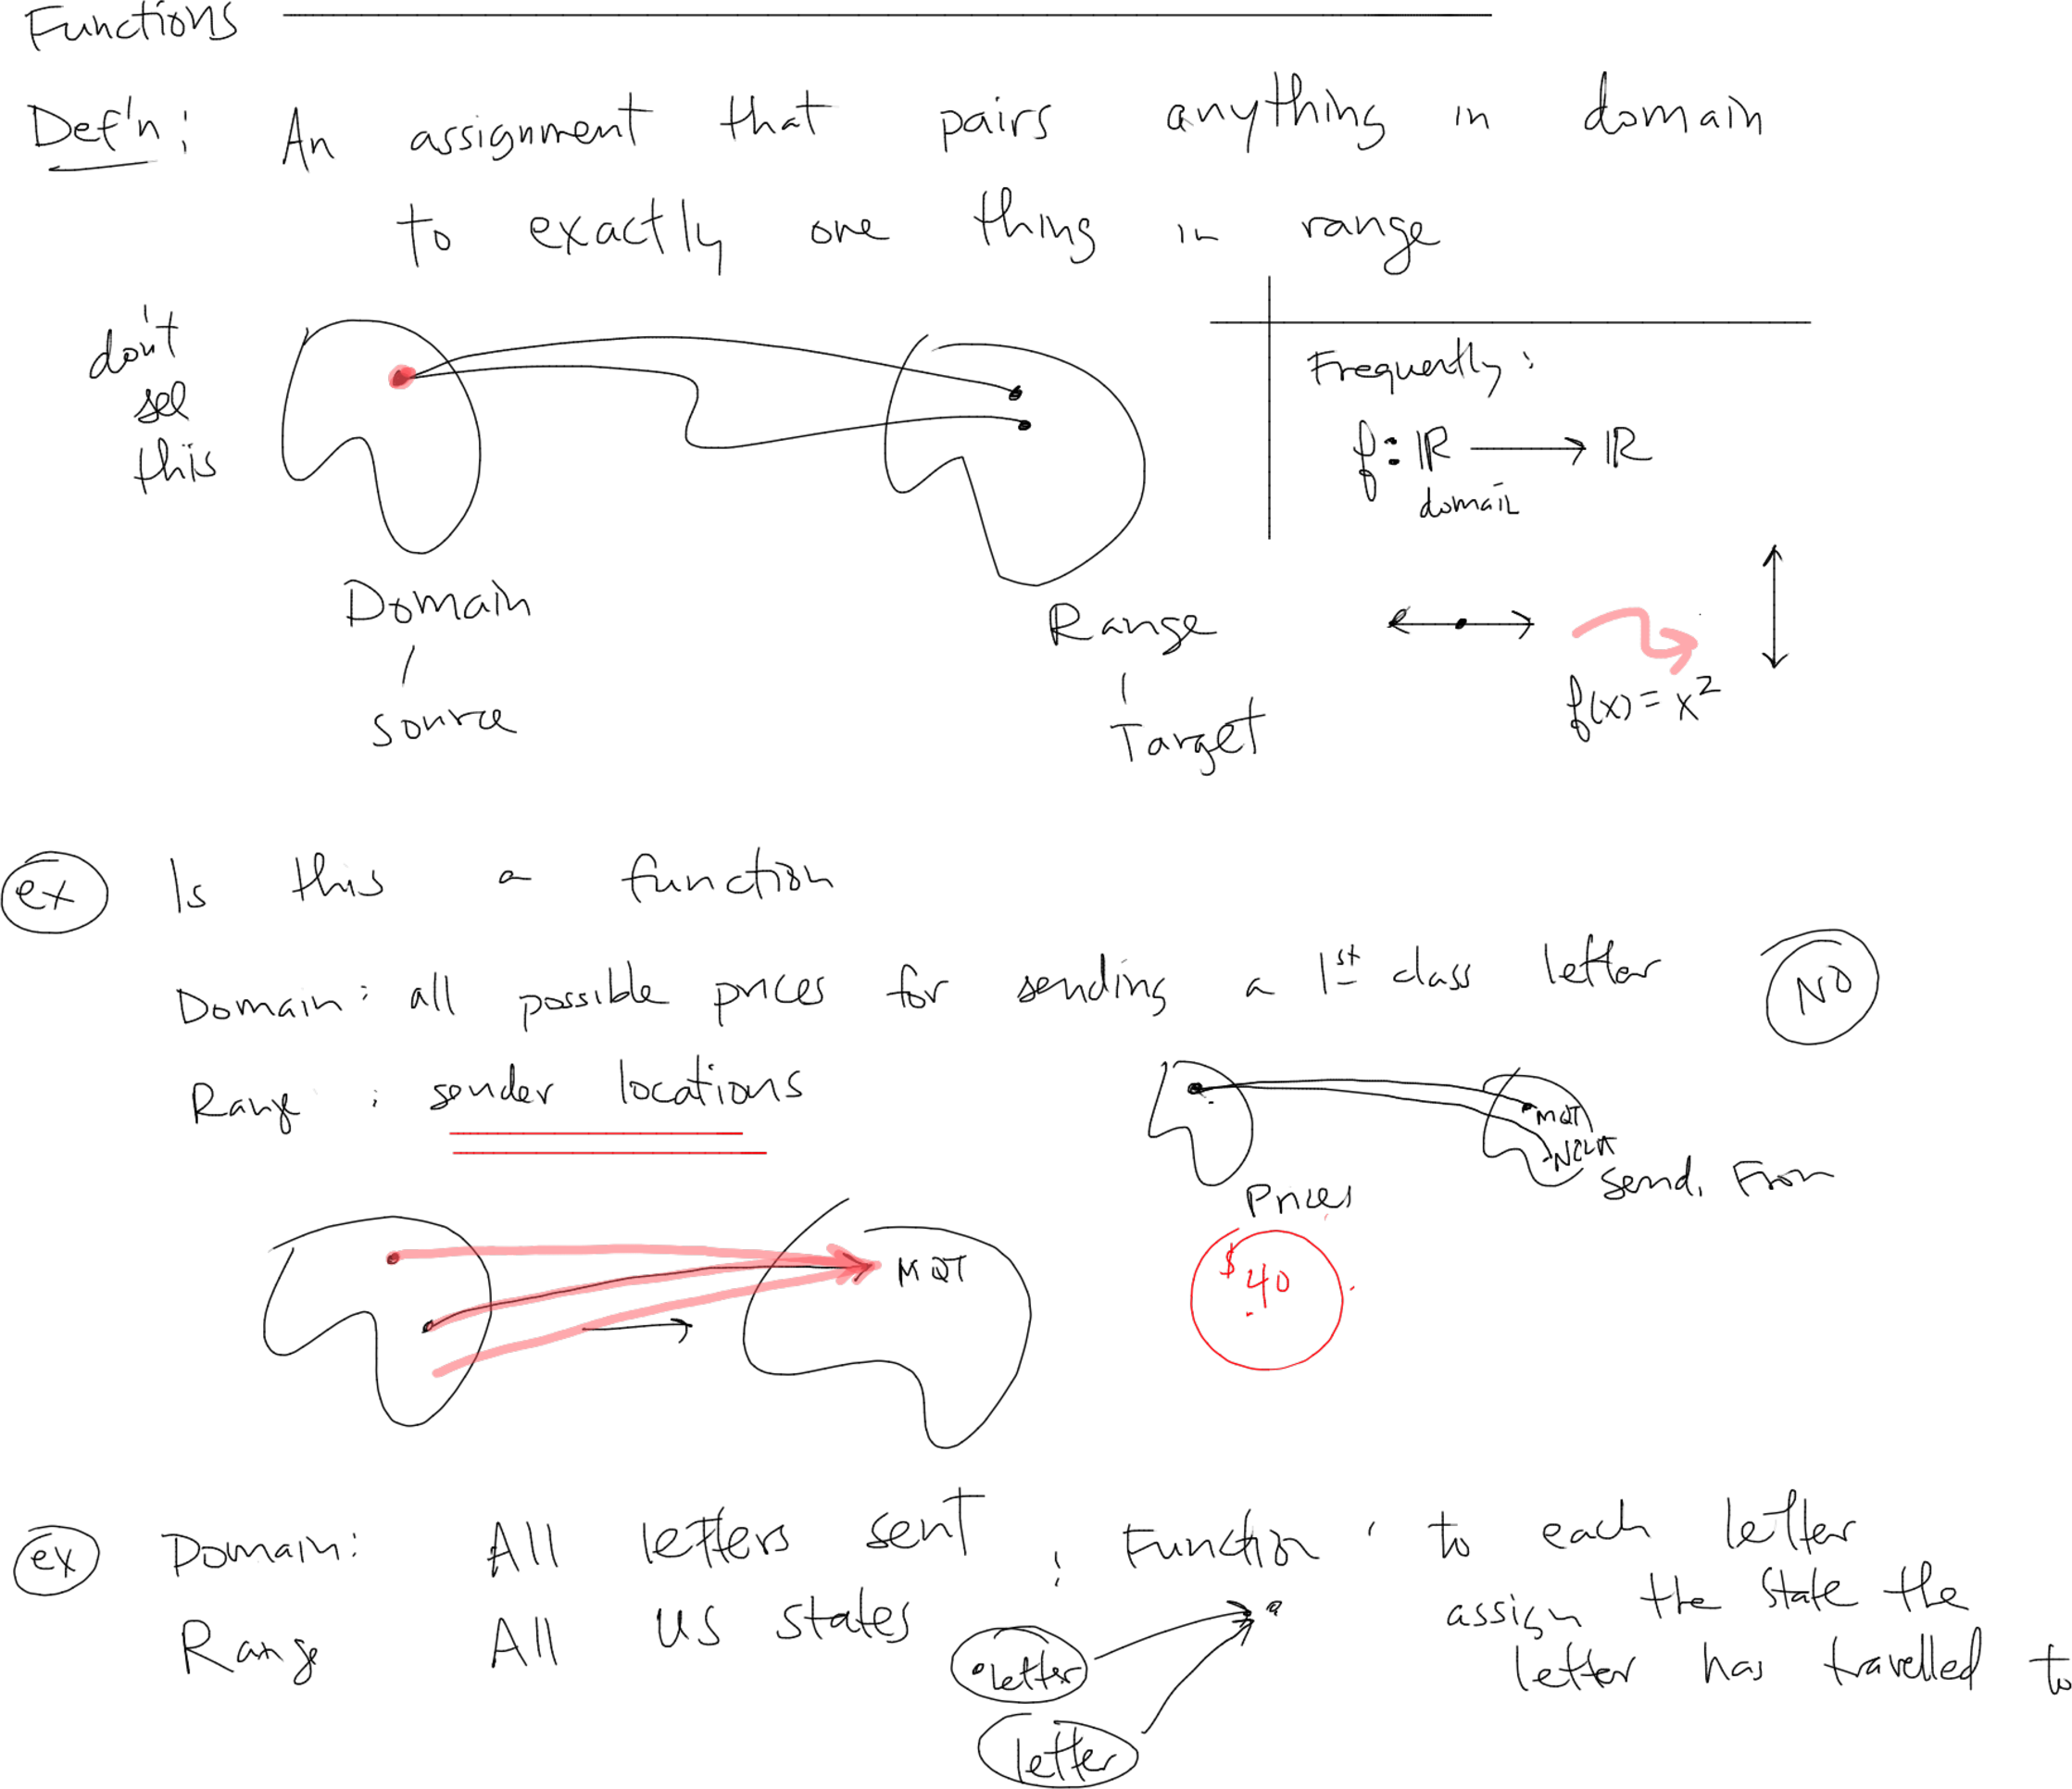 Functions
Def'n: An assignment that pairs anything in domain
to exactly one thing in range
don't
see
this
Domain
source
Range
Target
Frequently:
f: ℝ → ℝ
domain
f(x) = x²
ex Is this a function
Domain: all possible prices for sending a 1st class letter NO
Range: sender locations
MQT
Prices
Send. From
MQT
$.40
ex Domain: All letters sent : Function: to each letter
assign the state the
Range All US states
letter has travelled to
letter
letter